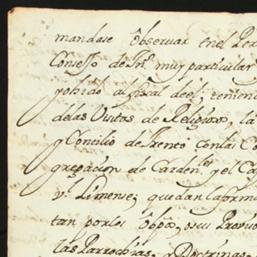 mandase observar en el Per
Consejo de Ind.s muy particular
y obid.o al fiscal deel; teniend
de las Visitas de Religiosos, la
y Concilio de Trento con las Co
gregacion de Carden.es y el Co
v.l Limense; quedan la form
tan por los Obpos, o sus Provis
las Parrochias, y Doctrinas